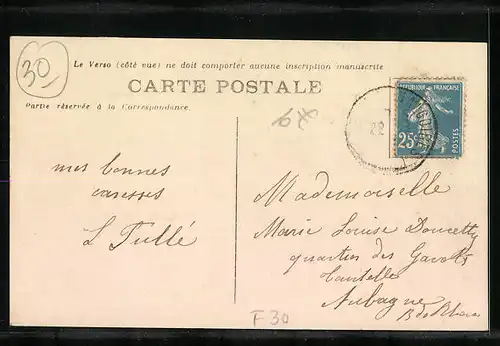 30
Le Verso (côté vue) ne doit comporter aucune inscription manuscrite
CARTE POSTALE
Partie réservée à la Correspondance.
REPUBLIQUE FRANÇAISE
25c
POSTES
22
mes bonnes
caresses
Mademoiselle
Marie Louise
quartier des
Aubagne
B de Rhône
F 30